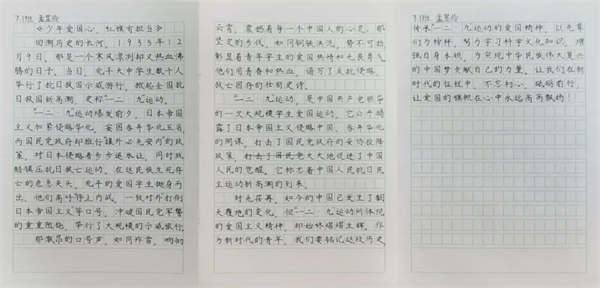 7.18班 孟昱伶
《少年爱国心,红旗有担当》
回溯历史的长河,1935年12
月9日,那是一个寒风凛冽却又热血沸
腾的日子。当日,北平大中学生数千人
举行了抗日救国示威游行,掀起全国抗
日救国新高潮,史称“一二·九”运动。
“一二·九”运动爆发前夕,日本帝国
主义加紧侵略华北,妄图吞并华北五省,
而国民党政府却推行“攘外必先安内”的政
策,对日本侵略者步步退让,同时残
酷镇压抗日救亡运动。在这民族生死存
亡的危急关头,北平的爱国学生挺身而
出。他们高呼“停止内战,一致对外”“打倒
日本帝国主义”等口号,冲破国民党军警
的重重阻挠,举行了大规模的示威游行。
那激昂的口号声,如同炸雷,响彻
云霄,震撼着每一个中国人的心灵;那
坚定的步伐,如同钢铁洪流,势不可挡,
彰显着青年学生的爱国热情和无畏勇气。
他们用青春和热血,谱写了反抗侵略、
救亡图存的壮丽史诗。
“一二·九”运动,是中国共产党领导
的一次大规模学生爱国运动。它公开揭
露了日本帝国主义侵略中国,吞并华北
的阴谋,打击了国民党政府的妥协投降
政策,
地促进了中国
人民的觉醒。它标志着中国人民抗日民
主运动新高潮的到来。
时光荏苒,如今的中国已发生了翻
天覆地的变化,但“一二·九”运动所体现
的爱国主义精神,却始终熠熠生辉。作
为新时代的青年,我们要铭记这段历史,
7.18班 孟昱伶
传承“一二·九”运动的爱国精神,以先辈
们为榜样,努力学习科学文化知识,增
强自身本领,为实现中华民族伟大复兴
的中国梦贡献自己的力量。让我们在新
时代的征程中,不忘初心,砥砺前行,
让爱国的旗帜在心中永远高高飘扬!